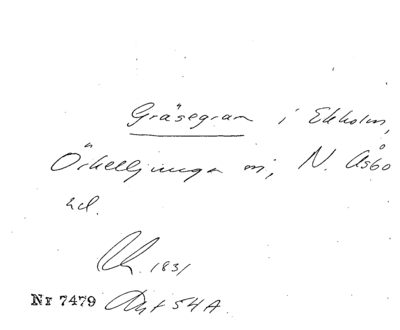 Gräsegram i Ekholm,
Örkelljunga sn, N. Åsbo
hd.
1831
Nr 7479 54 A.